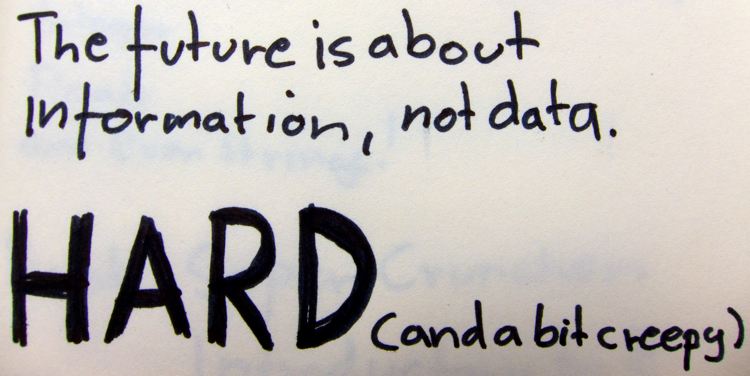 The future is about
information, not data.
HARD (and a bit creepy)